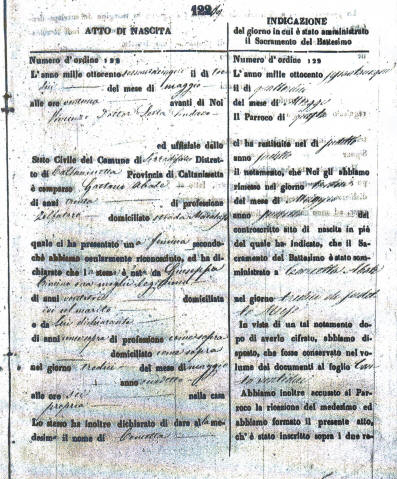 122
ATTO DI NASCITA
Numero d'ordine 122
L'anno mille ottocento sessantacinque il di tre
dici del mese di Maggio
alle ore ventuna avanti di Noi
Vincenzo Dottor Testa Sindaco
ed uffiziale dello
Stato Civile del Comune di Serradifalco Distret-
to di Caltanissetta Provincia di Caltanissetta
è comparso Gaetano Abate
di anni trenta di professione
Zolfataro domiciliato
quale ci ha presentato una femina secondo-
chè abbiamo ocularmente riconosciuto, ed ha di-
chiarato che la stessa è nata da Giuseppa
sua moglie legittima
di anni domiciliata
col marito
e da lui dichiarante
di anni come sopra di professione come sopra
domiciliato come sopra
nel giorno tredici del mese di Maggio
anno suddetto
alle ore sei nella casa
propria
Lo stesso ha inoltre dichiarato di dare alla me-
desima il nome di Concetta
INDICAZIONE
del giorno in cui è stato amministrato
il Sacramento del Battesimo
Numero d'ordine 122
L'anno mille ottocento sessantacinque
il di quattordici
del mese di Maggio
Il Parroco di
ci ha restituito nel di suddetto
anno suddetto
il notamento, che Noi gli abbiamo
rimesso nel giorno tredici
del mese di Maggio
anno suddetto del
controscritto atto di nascita in piè
del quale ha indicato, che il Sa-
cramento del Battesimo è stato som-
ministrato a Concetta Abate
nel giorno tredici di
to Mese
In vista di un tal notamento do-
po di averlo cifrato, abbiamo di-
sposto, che fosse conservato nel vo-
lume dei documenti al foglio cen
to ventidue
Abbiamo inoltre accusato al Par-
roco la ricezione del medesimo ed
abbiamo formato il presente atto,
ch' è stato inscritto sopra i due re-